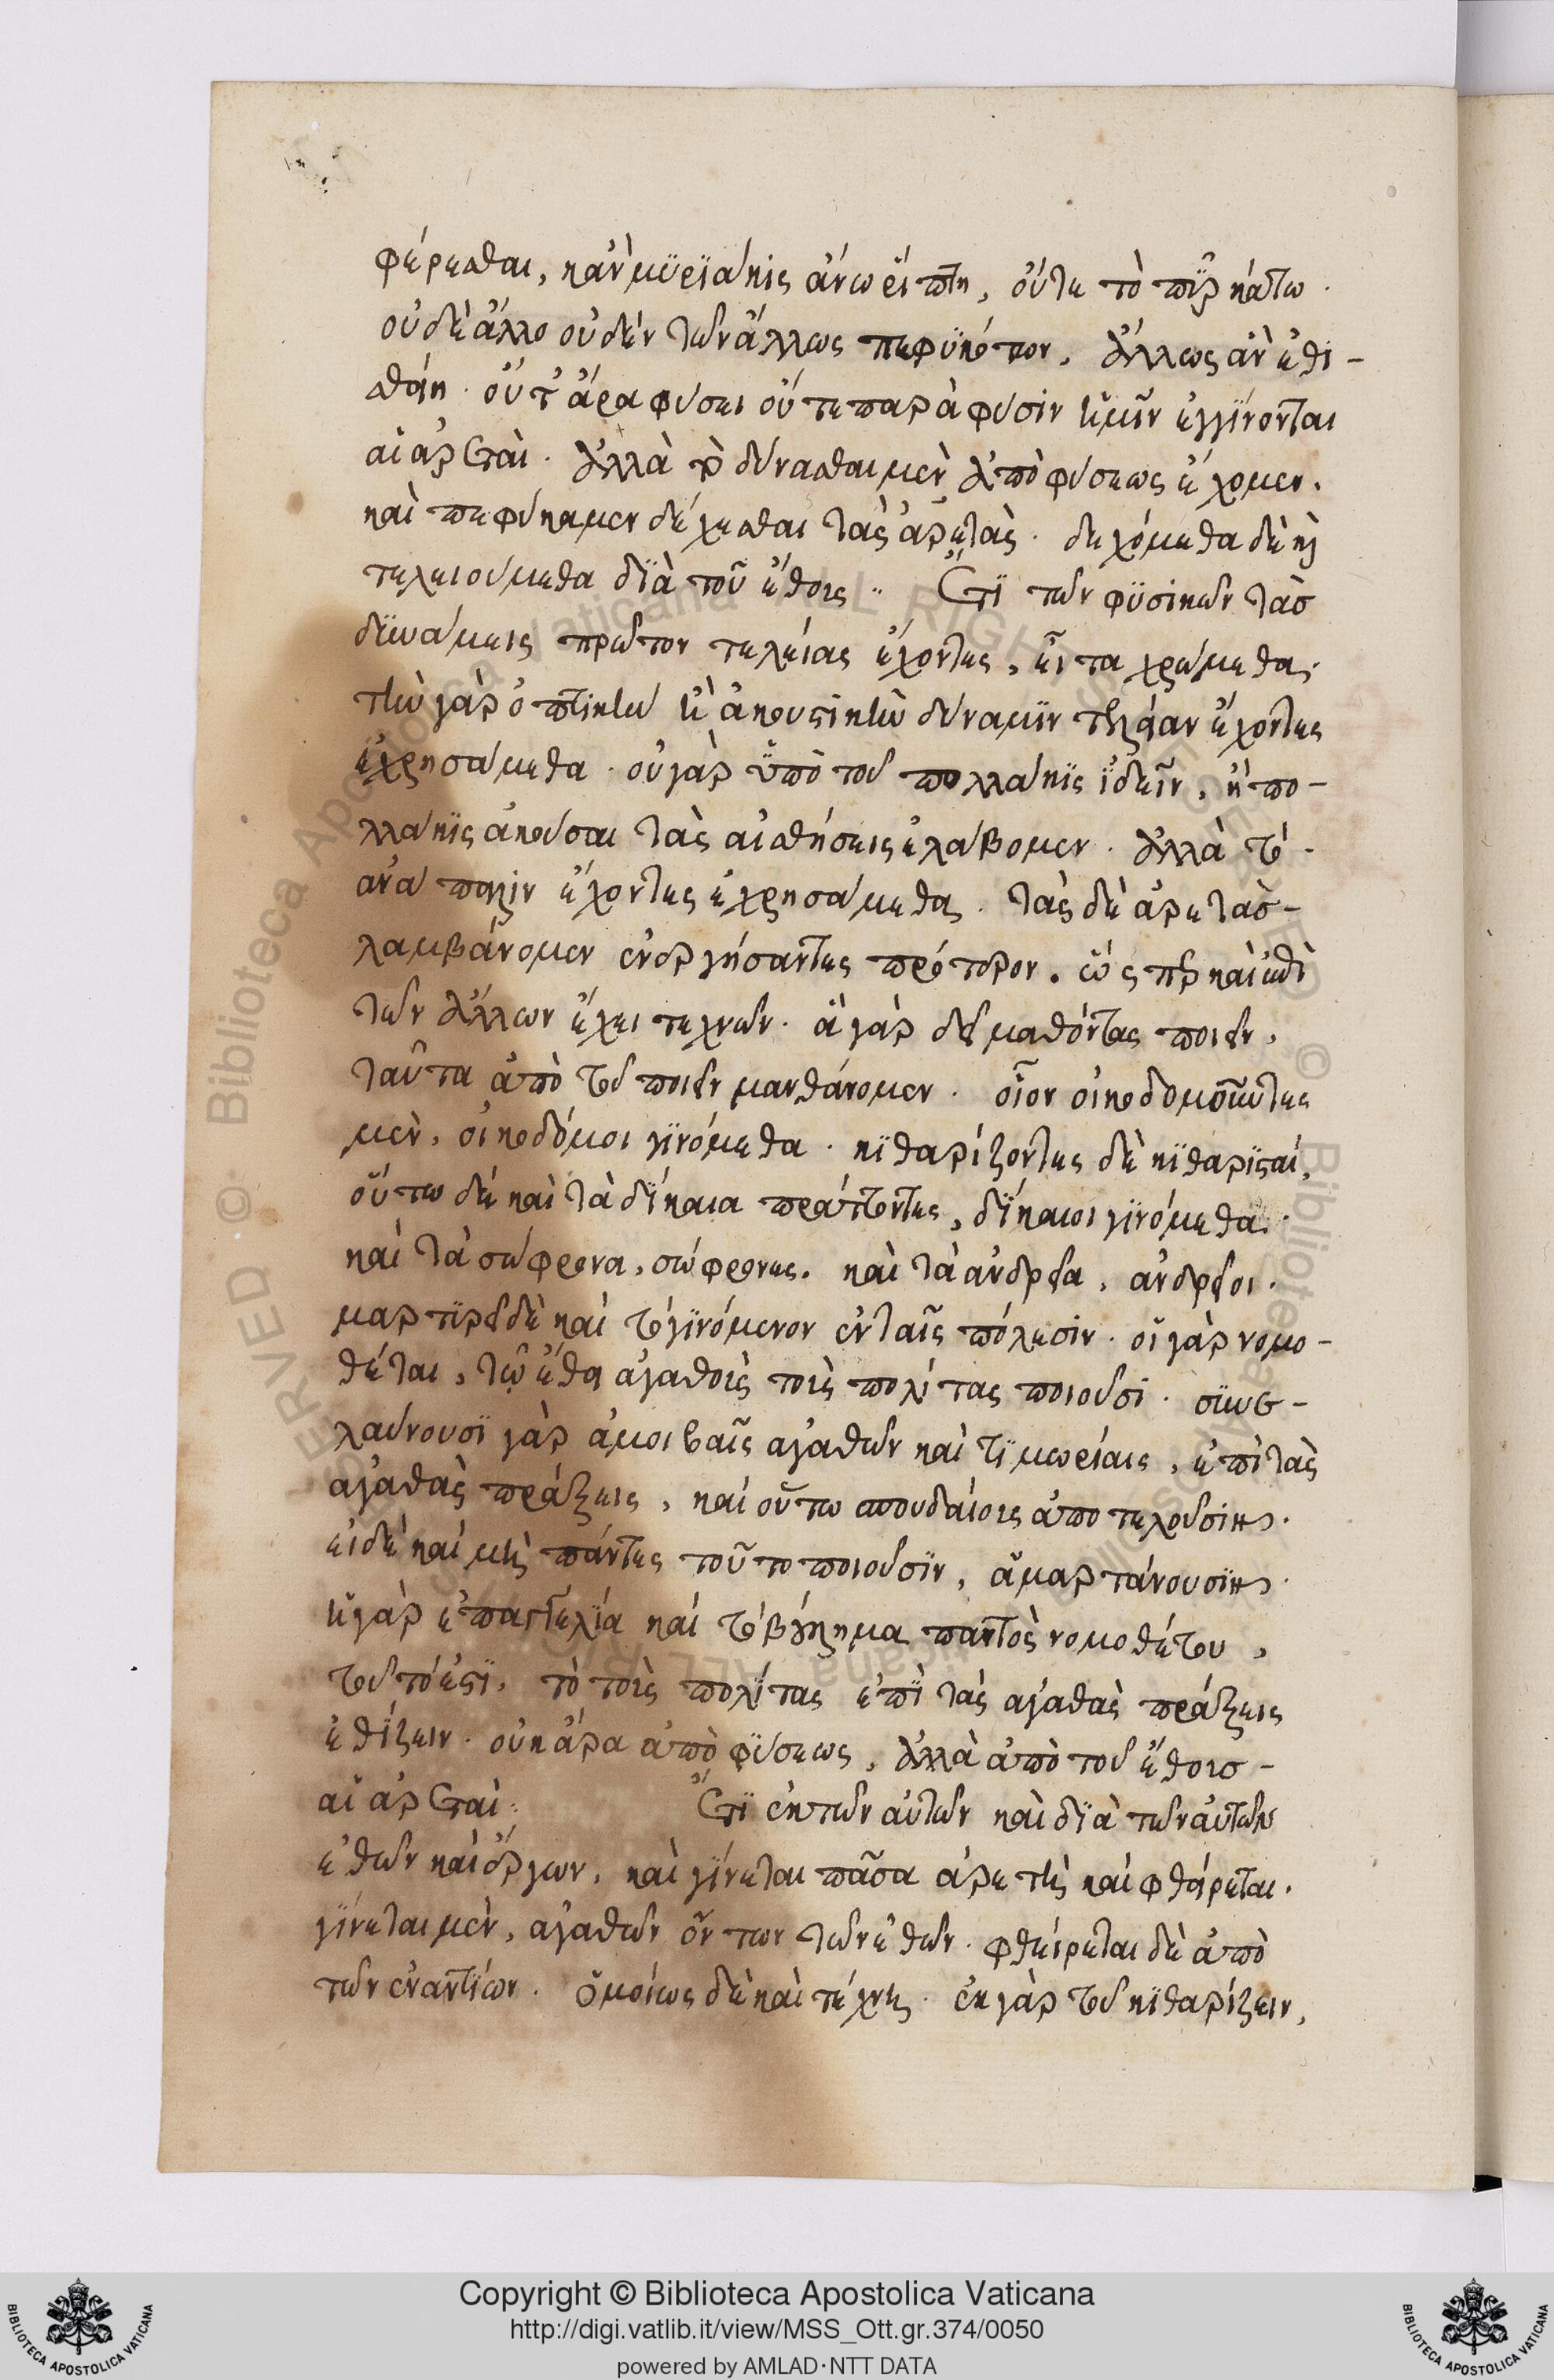 φέρεσθαι, κἂν μυριάκις ἄνω ῥίπτη, οὔτε τὸ πῦρ κάτω.
οὐδὲ ἄλλο οὐδὲν τῶν ἄλλως πεφυκότων, ἄλλως ἂν ἐθι-
σθείη. οὔτ' ἄρα φύσει οὔτε παρὰ φύσιν ἡμῖν ἐγγίνονται
αἱ ἀρεταί. ἀλλὰ τὸ δύνασθαι μὲν ἀπὸ φύσεως ἔχομεν.
καὶ πεφύκαμεν δέχεσθαι τὰς ἀρετάς. δεχόμεθα δὲ καὶ
τελειούμεθα διὰ τοῦ ἔθους.. Ἔτι τῶν φυσικῶν τὰσ
δυνάμεις πρῶτον τελείας ἔχοντες, εἶτα χρώμεθα.
τὴν γὰρ ὀπτικὴν ἢ ἀκουστικὴν δύναμιν τελείαν ἔχοντες
ἐχρησάμεθα. οὐ γὰρ ὑπὸ τοῦ πολλάκις ἰδεῖν, ἢ πο-
λλάκις ἀκοῦσαι τὰς αἰσθήσεις ἐλάβομεν. ἀλλὰ τὸ -
ἀνάπαλιν ἔχοντες ἐχρησάμεθα. τὰς δὲ ἀρετὰσ-
λαμβάνομεν ἐνεργήσαντες πρότερον. ὥσπερ καὶ ἐπὶ
τῶν ἄλλων ἔχει τεχνῶν. ἃ γὰρ δεῖ μαθόντας ποιεῖν,
ταῦτα ἀπὸ τοῦ ποιεῖν μανθάνομεν. οἷον οἰκοδομοῦντες
μὲν, οἰκοδόμοι γινόμεθα. κιθαρίζοντες δὲ κιθαρισταί,
οὕτω δὲ καὶ τὰ δίκαια πράττοντες, δίκαιοι γινόμεθα.
καὶ τὰ σώφρονα, σώφρονες. καὶ τὰ ἀνδρεῖα, ἀνδρεῖοι.
μαρτυρεῖ δὲ καὶ τὸ γινόμενον ἐν ταῖς πόλεσιν. οἱ γὰρ νομο-
θέται, τῷ ἔθει ἀγαθοὺς τοὺς πολίτας ποιοῦσι. συνε-
λαύνουσι γὰρ ἀμοιβαῖς ἀγαθῶν καὶ τιμωρίαις, ἐπὶ τὰς
ἀγαθὰς πράξεις, καὶ οὕτω σπουδαίους ἀποτελοῦσιν.
εἰ δὲ καὶ μὴ πάντες τοῦτο ποιοῦσιν, ἁμαρτάνουσιν.
ἡ γὰρ ἐπαγγελία καὶ τὸ βούλημα παντὸς νομοθέτου,
τοῦτό ἐστι, τὸ τοὺς πολίτας ἐπὶ τὰς ἀγαθὰς πράξεις
ἐθίζειν. οὐκ ἄρα ἀπὸ φύσεως, ἀλλὰ ἀπὸ τοῦ ἔθουσ -
αἱ ἀρεταί: Ἔτι ἐκ τῶν αὐτῶν καὶ διὰ τῶν αὐτῶν
ἐθῶν καὶ ἔργων, καὶ γίνεται πᾶσα ἀρετὴ καὶ φθείρεται.
γίνεται μὲν, ἀγαθῶν ὄντων τῶν ἐθῶν. φθείρεται δὲ ἀπὸ
τῶν ἐναντίων. ὁμοίως δὲ καὶ τέχνης. ἐκ γὰρ τοῦ κιθαρίζειν,
Copyright © Biblioteca Apostolica Vaticana
http://digi.vatlib.it/view/MSS_Ott.gr.374/0050
powered by AMLAD·NTT DATA